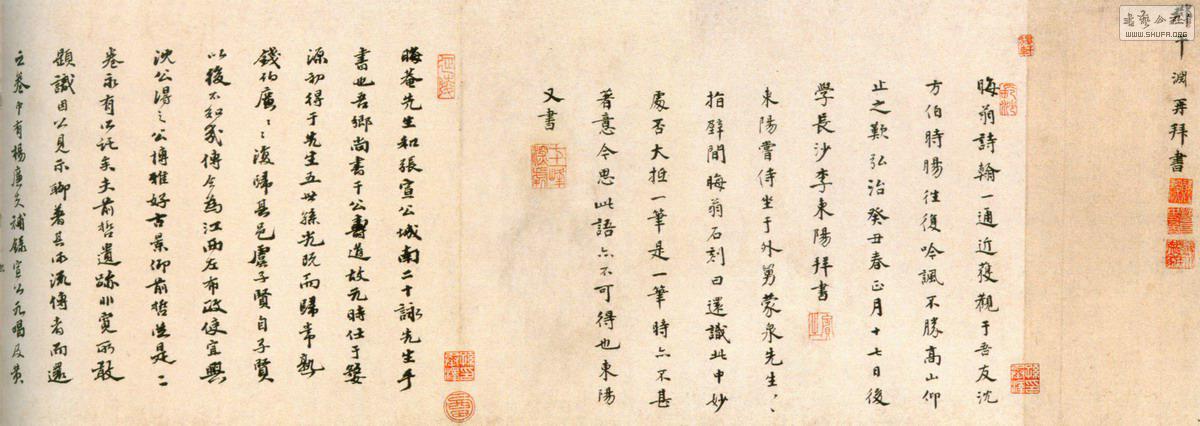 書藝公社
WWW.SHUFA.ORG
淵再拜書
晦翁詩翰一通近獲觀于吾友沈
方伯時暘往復吟諷不勝高山仰
止之歎弘治癸丑春正月十七日後
學長沙李東陽拜書
東陽嘗侍坐于外舅蒙泉先生先生
指壁間晦翁石刻曰還識此中妙
處否大抵一筆是一筆時亦不甚
著意今思此語亦不可得也東陽
又書
晦菴先生和張宣公城南二十詠先生手
書也吾鄉尚書干公壽道故元時仕于婺
源初得于先生五世孫光既而歸常熟
錢伯廣伯廣復歸吾邑虞子賢自子賢
以後不知幾傳今為江西左布政使宜興
沈公得之公博雅好古景仰前哲迨是二
卷永有所託矣夫前哲遺跡非寬所敢
題識因以見示聊著其所流傳者而還
之卷中有楊廉夫補錄宣公元唱及黃